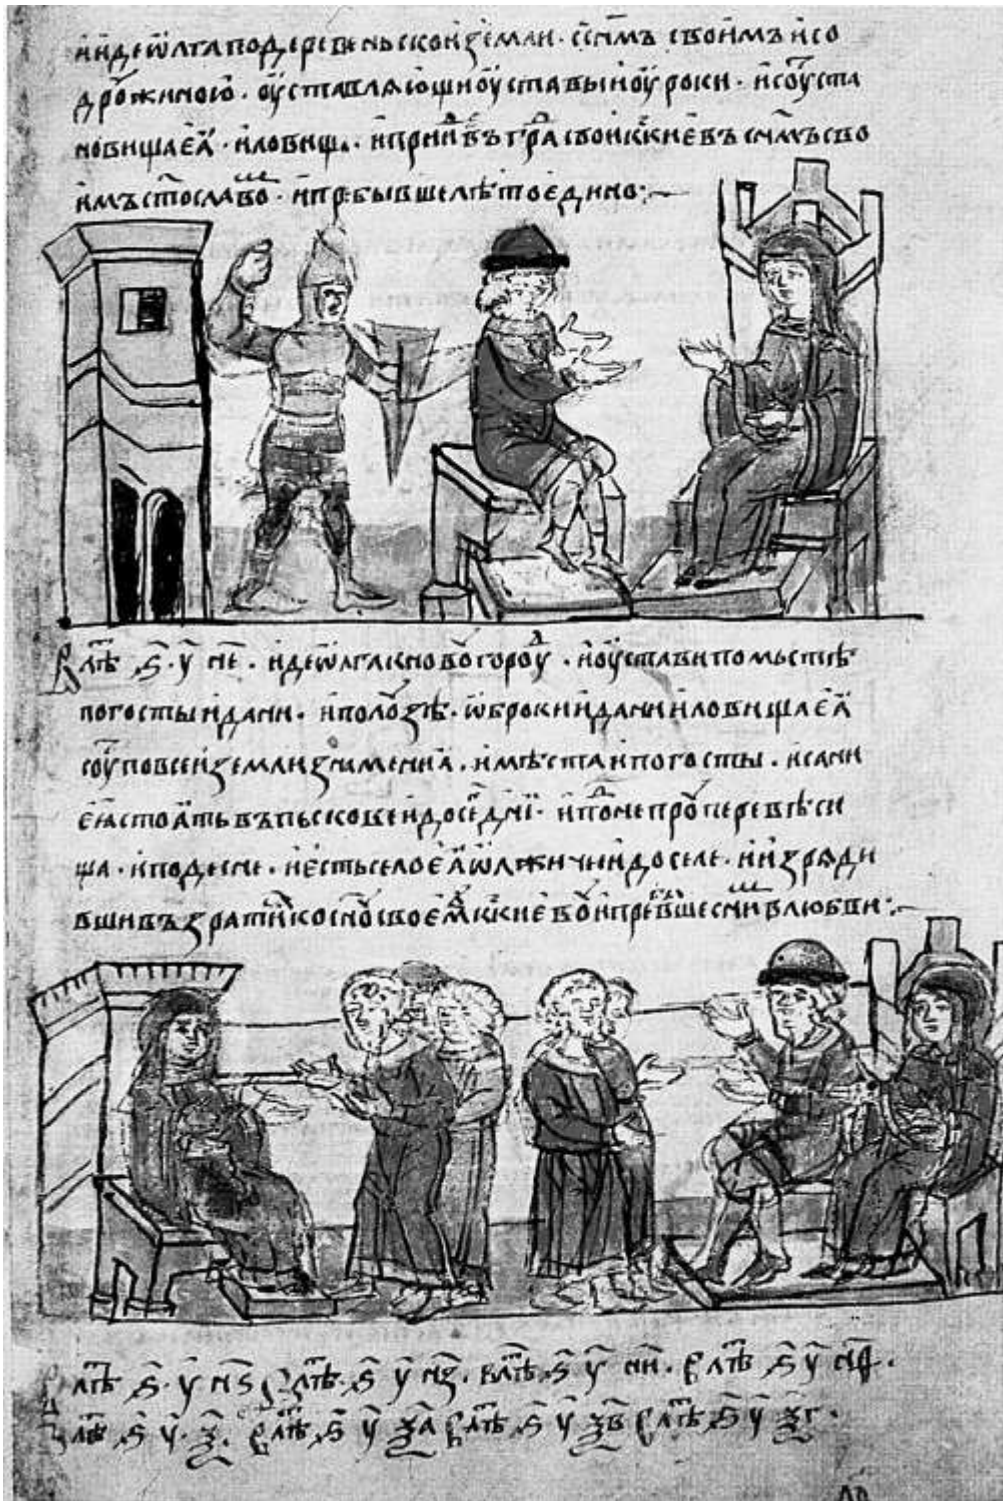 и иде ѡлга по деревеньскои земли · с сн҃мъ своимъ и со
дрꙋжиною · ѹставляющи ѹставы и ѹроки · и сꙋть ста
новища еѧ · и ловища · и приде въ градъ свои к киевъ с сн҃мъ сво
имъ ст҃ославомъ · и пребывши лѣто едино :~
В лѣтⷪ ҂ѕ҃ · у҃ · н҃е · иде ѡлга к новугородꙋ · и ѹстави по мьстѣ
погосты и дани · и по лꙋзѣ · ѡброки и дани и ловища еѧ
сꙋть по всеи земли знамениѧ · и мѣста и погосты · и сани
еѧ стоѧть въ пьсковѣ и до сего дни · и по днепрꙋ перевѣси
ща · и по десне · и есть село еѧ ѡлжичи и доселе · и изряди
вши възратисѧ к сн҃ꙋ своемꙋ к киевꙋ и пребываше с нимъ в любви :~
В лѣтⷪ ҂ѕ҃ · у҃ н҃ѕ В лѣтⷪ · ҂ѕ҃ у҃ н҃з · в лѣтⷪ · ҂ѕ҃ у҃ н҃и · В лѣтⷪ ҂ѕ҃ у҃ н҃ѳ ·
В лѣтⷪ ҂ѕ҃ у҃ · ѯ҃ · В лѣтⷪ ҂ѕ҃ у҃ ѯ҃а В лѣтⷪ ҂ѕ҃ у҃ ѯ҃в В лѣтⷪ ҂ѕ҃ у҃ ѯ҃г ·